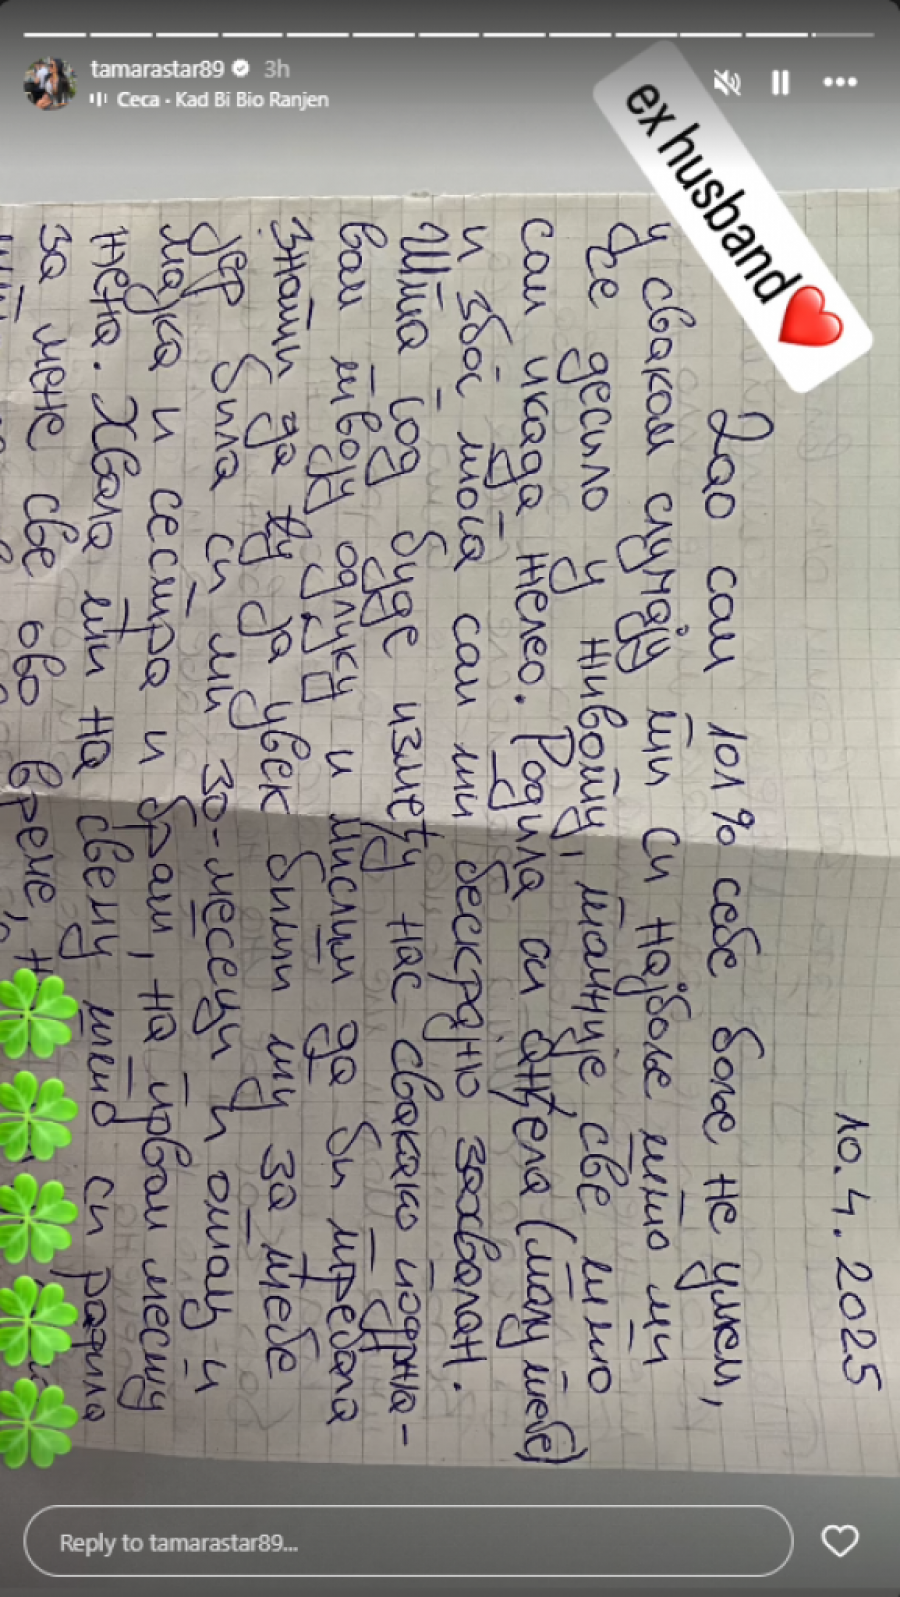 tamarastar89 3h
Ceca · Kad Bi Bio Ranjen
ex husband❤️
10.4.2025
Дао сам 101% себе боље не умем,
у сваком случају ти си најбоље што ми
се десило у животу, тачније све што
сам икада желео. Родила си анђела (малу тебе)
и због тога сам ти бескрајно захвалан.
Шта год буде између нас свакако подржа-
вам твоју одлуку и мислим да би требала
знати да ћу ја увек бити ту за тебе
јер била си ми 30-месеци и отац и
мајка и сестра и брат, на првом месту
жена. Хвала ти на свему што си радила
за мене све ово време,
Reply to tamarastar89...